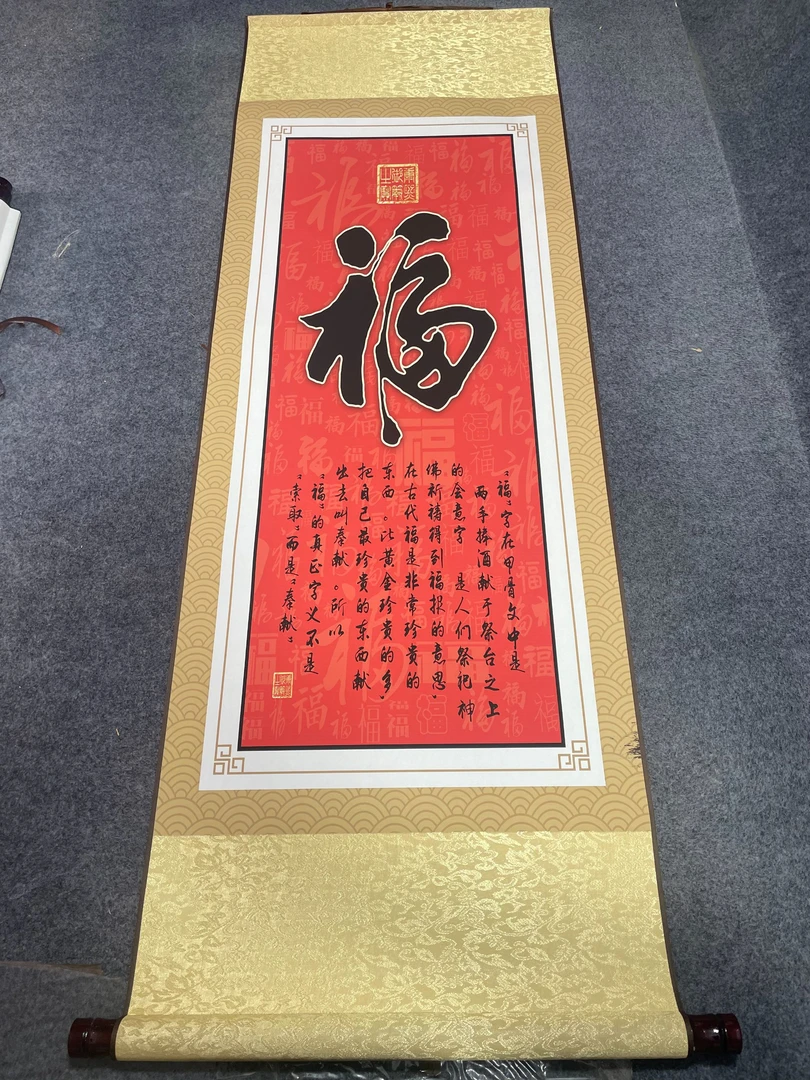 康熙御筆之寶
福
“福”字在甲骨文中是
两手捧酒献于祭台之上
的会意字 是人们祭祀神
佛祈祷得到福报的意思，
在古代福是非常珍贵的
东西。比黄金珍贵的多，
把自己最珍贵的东西献
出去叫奉献。所以
“福”的真正字义不是
“索取”而是“奉献”